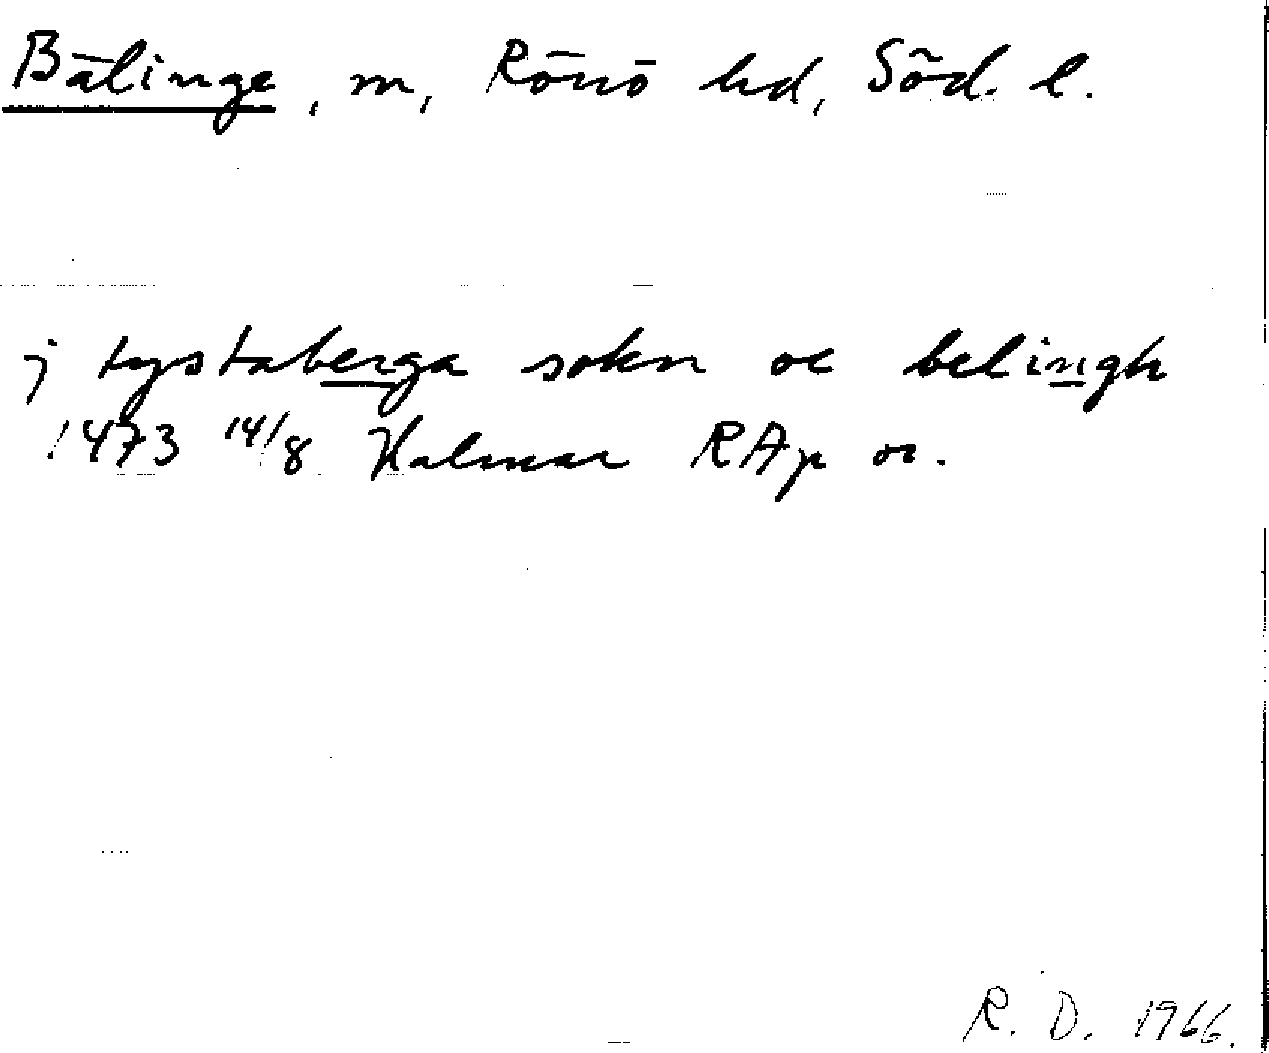 Bälinge, m, Rönö hd, Söd. l.
j tystaberga sokn oc belingh
1473 14/8 Kalmar RAp or.
R. D. 1966.